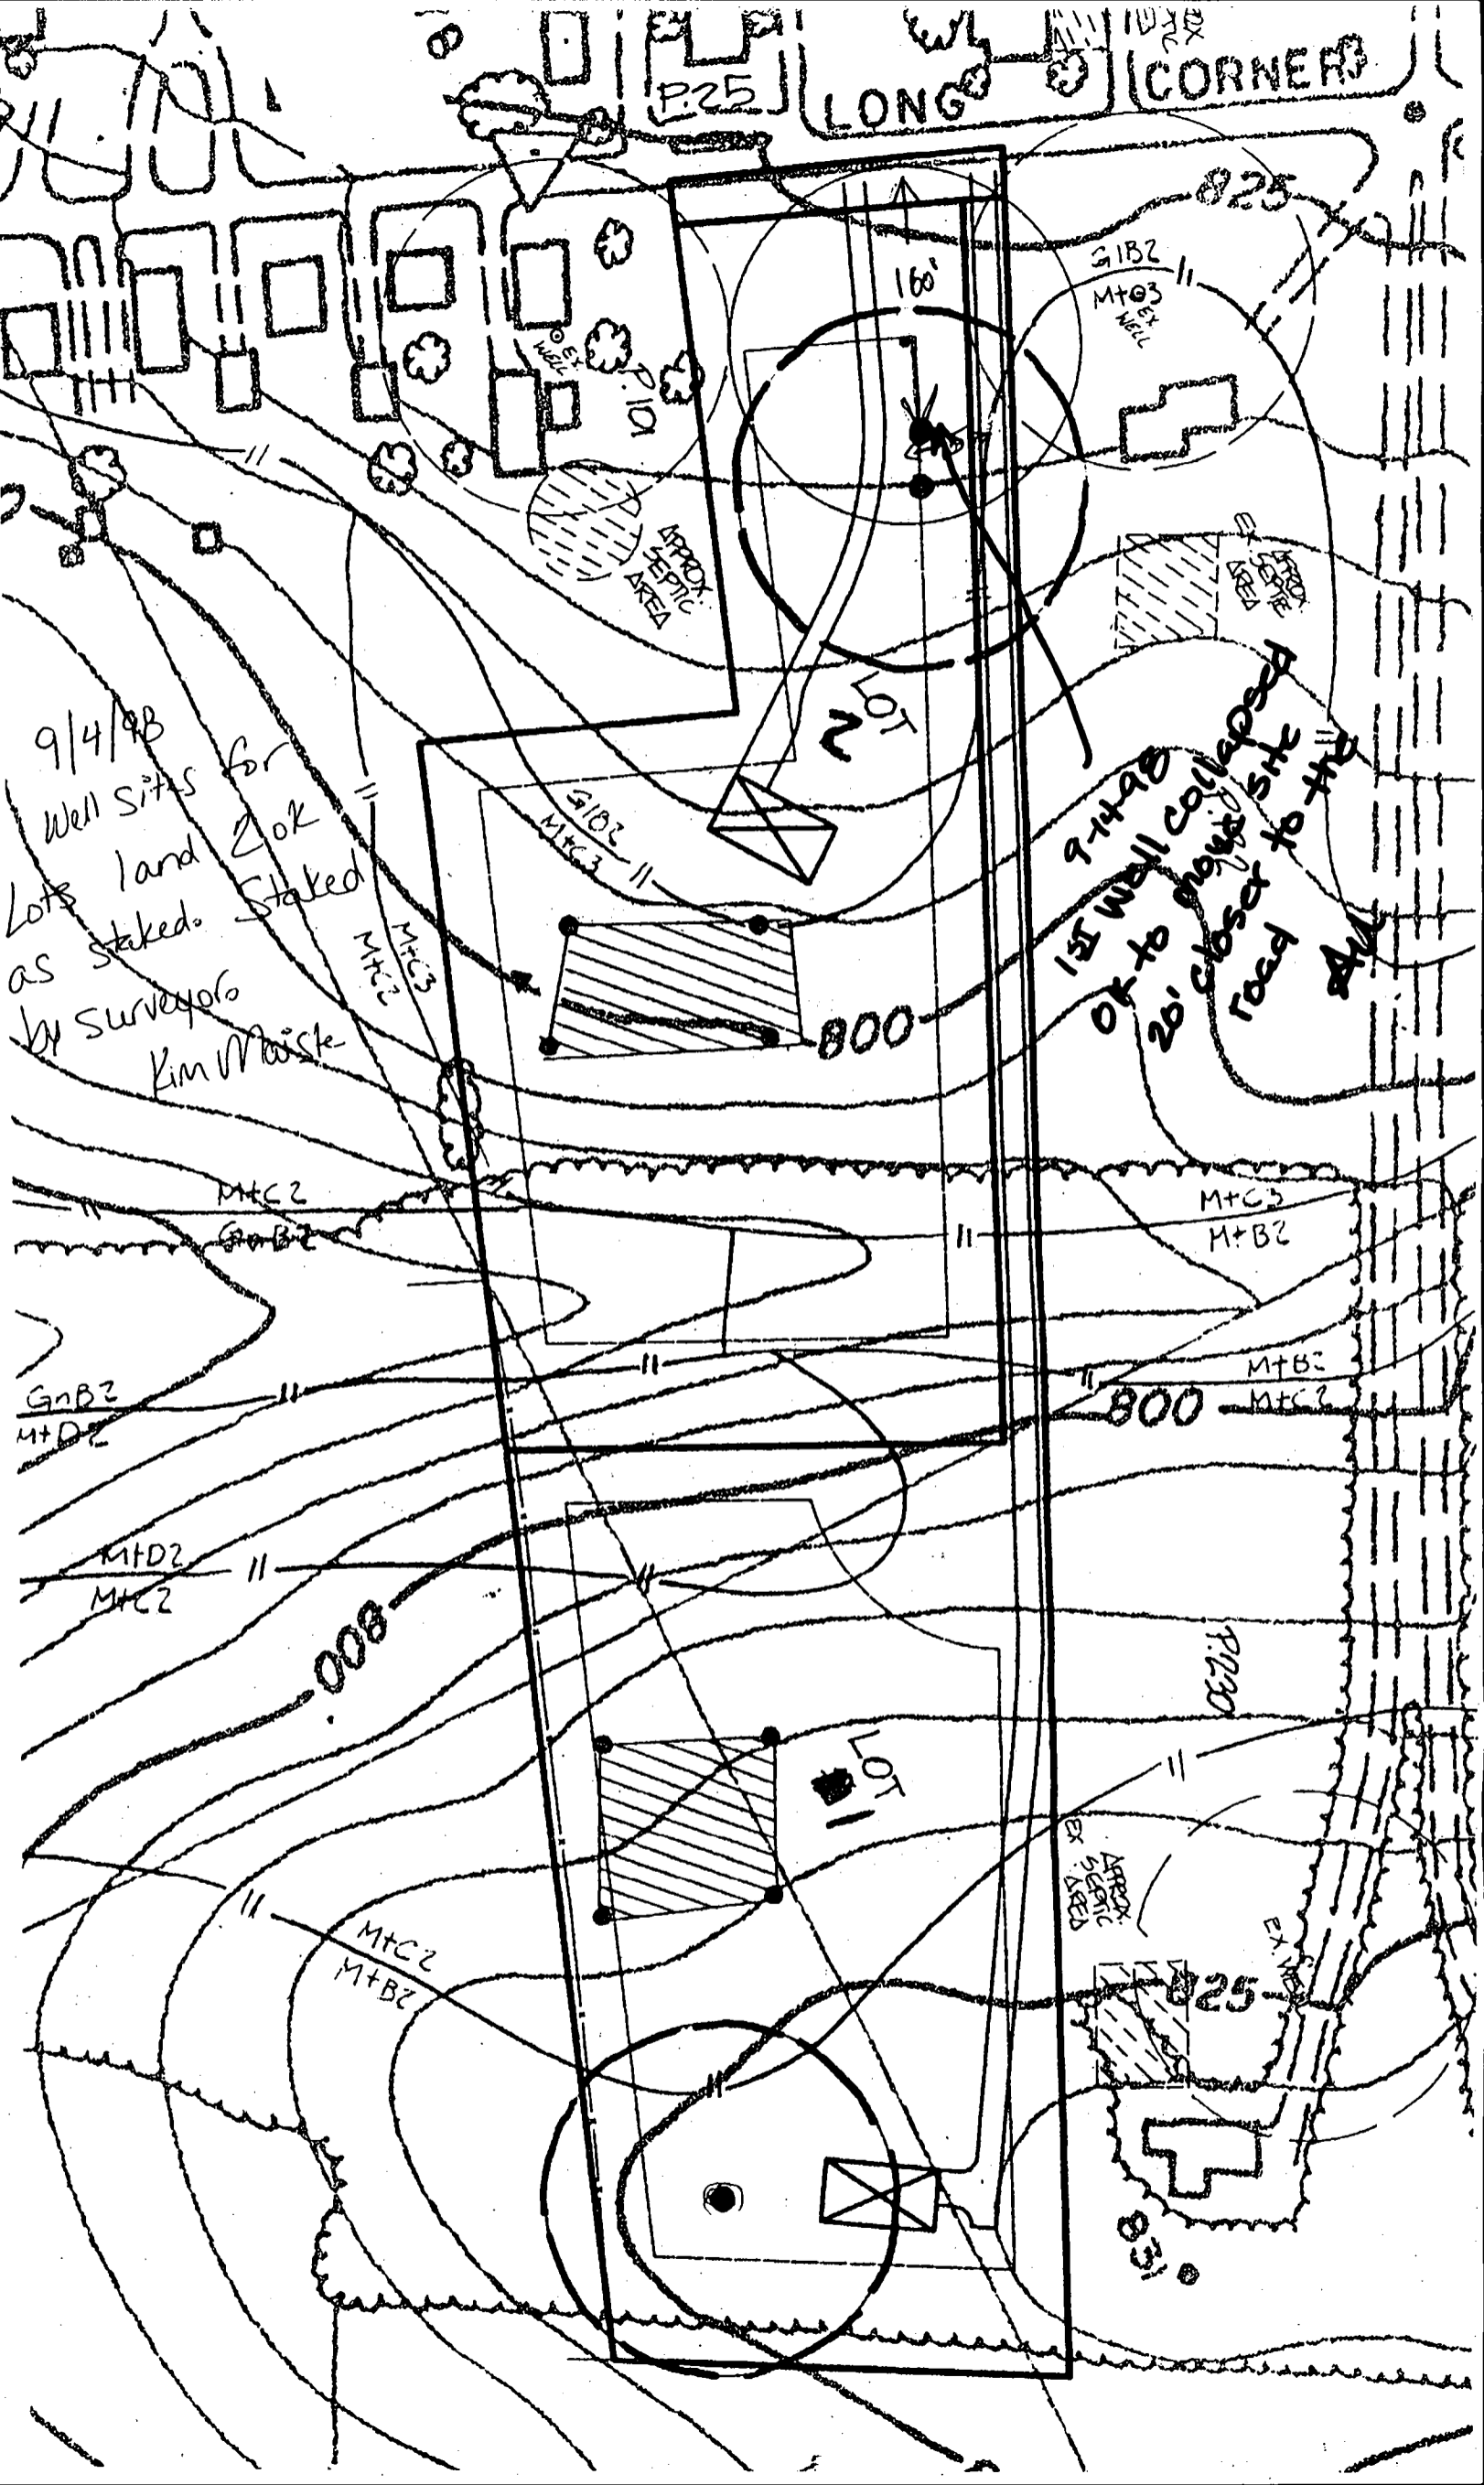 P.25
LONG
CORNER
825
G1B2
160'
EX
WELL
EX
WELL
P.101
APPROX.
SEPTIC
AREA
EX.
APPROX.
SEPTIC
AREA
LOT
2
9/4/98
Well sites for
Lots 1 and 2 ok
as staked. Staked
by surveyor.
G1B2
MtC3
9-14-98
1ST Well collapsed
OK to move site
20' closer to the
road
MtC3
MtC2
800
MtC2
GnB2
MtC3
MtB2
GnB2
MtD2
MtB2
MtC2
800
MtD2
MtC2
800
P.230
LOT
1
EX.
APPROX.
SEPTIC
AREA
MtC2
MtB2
825
831